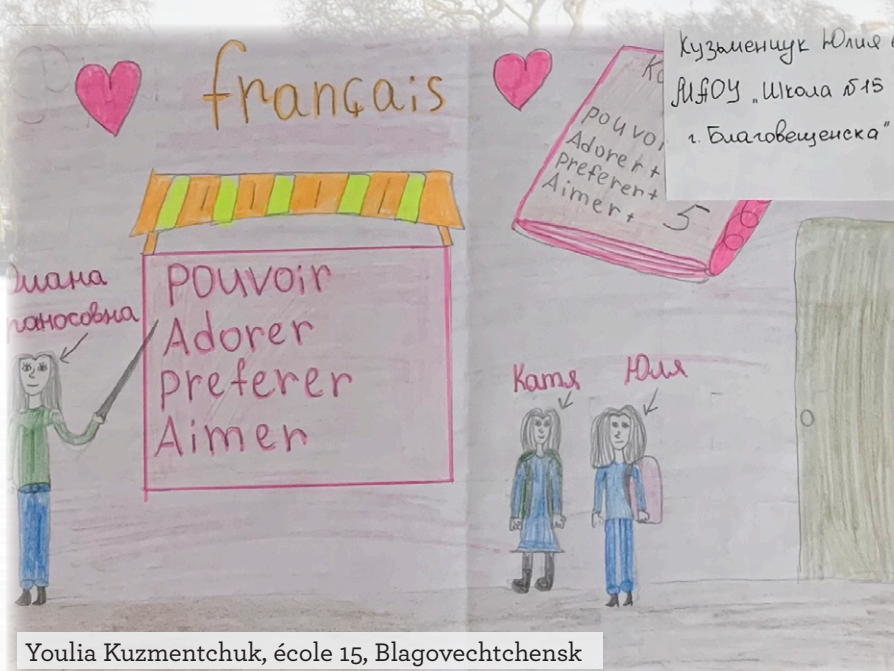 français
Кузьменчук Юлия
МАОУ „Школа №15
г. Благовещенска"
Pouvoi
Adorer +
Preferer +
Aimer +
5
Диана
POUVOIR
Adorer
Preferer
Aimer
Катя
Юля
Youlia Kuzmentchuk, école 15, Blagovechtchensk